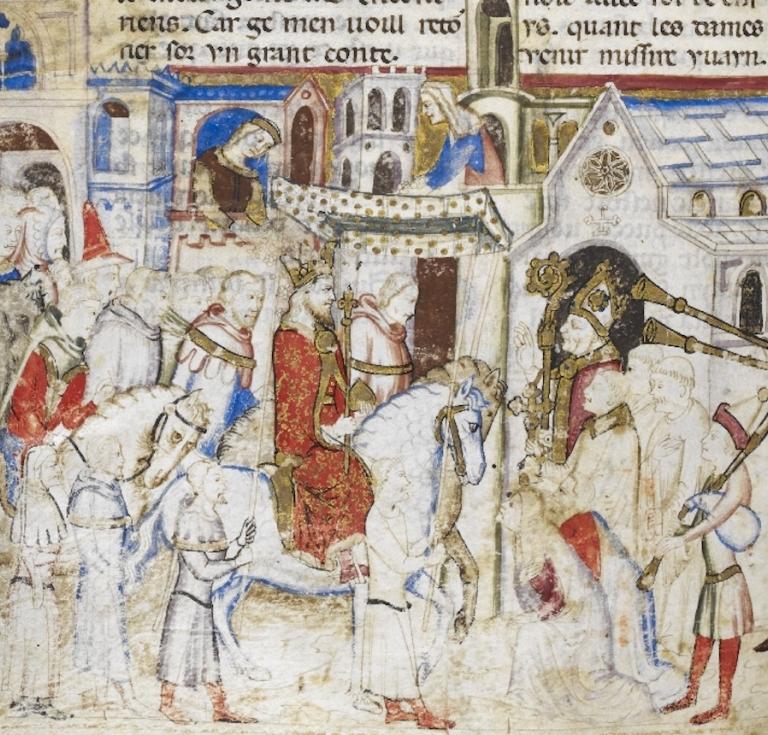 riens. Car ge men uoill retó
ner sor vn grant conte.
ys. quant les dames
venir missire yuayn.